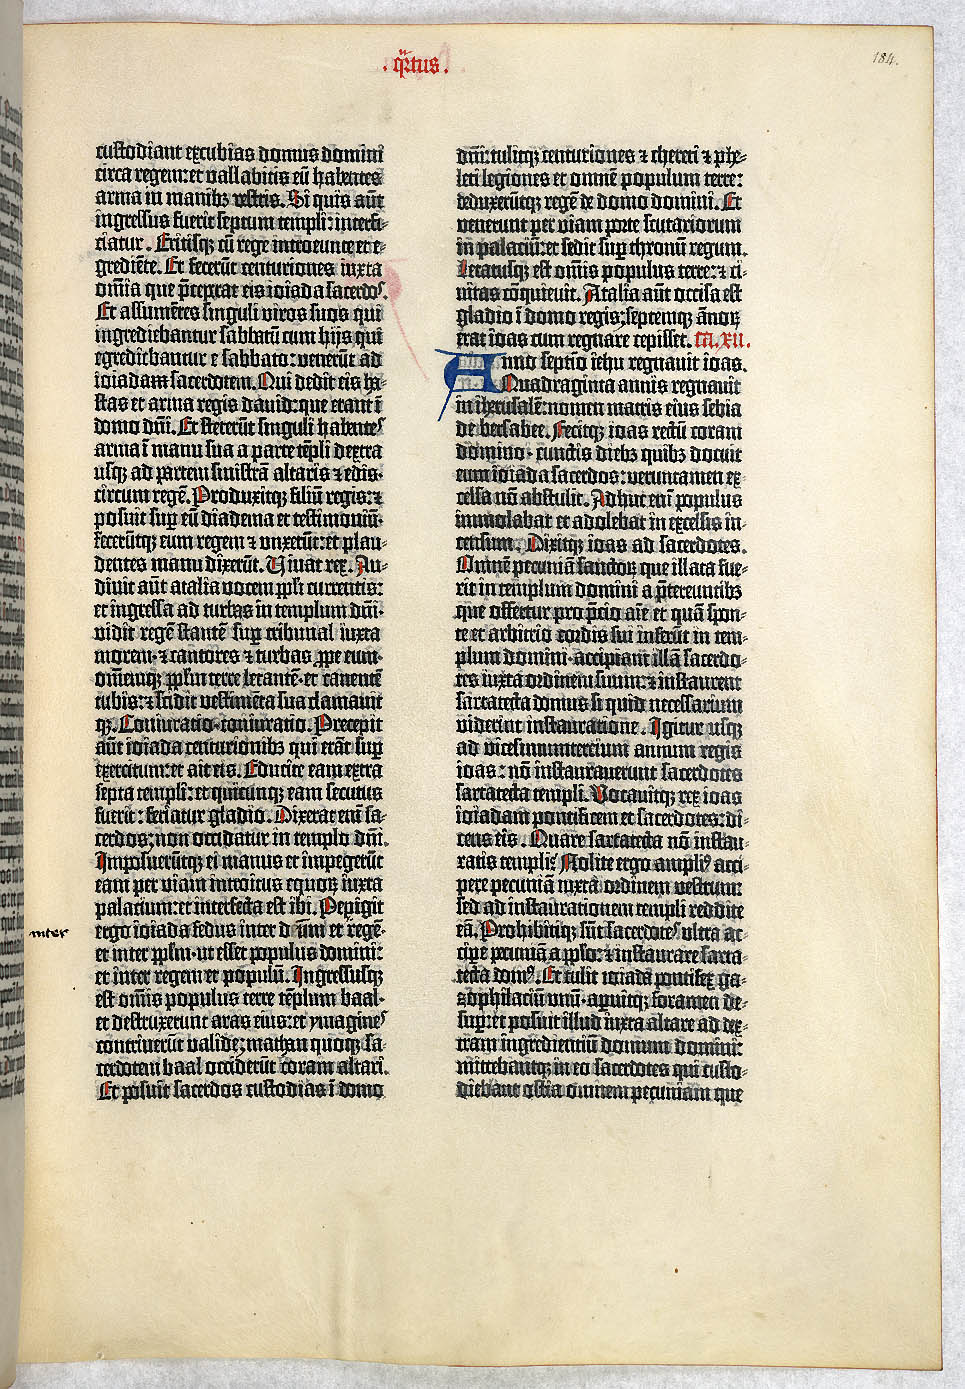 .q̄rtus.
184.
custodiant excubias domus domini
circa regem: et vallabitis eū habentes
arma in manibꝫ vestris. Si quis aūt
ingressus fuerit septum templi: interfi-
ciatur. Eritisqꝫ cū rege introeunte et e-
grediēte. Et fecerūt centuriones iuxta
om̄ia que p̄ceperat eis ioiada sacerdos.
Et assumētes singuli viros suos qui
ingrediebantur sabbatū cum hijs qui
egrediebantur e sabbato: venerūt ad
ioiadam sacerdotem. Qui dedit eis ha-
stas et arma regis david: que erant ī
domo dn̄i. Et steterūt singuli habentes
arma ī manu sua a parte tēpli dextra
usqꝫ ad partem sinistrā altaris ⁊ edis·
circum regē. Produxitqꝫ filiū regis: ⁊
posuit sup̄ eū diadema et testimoniū·
feceruntqꝫ eum regem ⁊ unxerūt: et plau-
dentes manu dixerūt. Vivat rex. Au-
divit aūt atalia vocem pp̄li currentis:
et ingressa ad turbas in templum dn̄i·
vidit regē stantē sup̄ tribunal iuxta
morem· ⁊ cantores ⁊ turbas ꝓpe eum·
om̄emqꝫ pp̄lm terre letantē· et canentē
tubis: ⁊ scidit vestimēta sua clamavit
qꝫ. Coniuratio· coniuratio. Precepit
aūt ioiada centurionibꝫ qui erāt sup̄
exercitum: et ait eis. Educite eam extra
septa templi: et quicunqꝫ eam secutus
fuerit: feriatur gladio. Dixerat em̄ sa-
cerdos: non occidatur in templo dn̄i.
Imposuerūtqꝫ ei manus et impegerūt
eam per viam introitus equoꝝ iuxta
palacium: et interfecta est ibi. Pepigit
ergo ioiada fedus inter d īm et regē·
inter
et inter pp̄lm· ut esset populus domini:
et inter regem et populū. Ingressusqꝫ
est om̄is populus terre tēplum baal·
et destruxerunt aras eius: et ymagines
contriverūt valide: mathan quoqꝫ sa-
cerdotem baal occiderūt coram altari.
Et posuit sacerdos custodias ī domo
dn̄i: tulitqꝫ centuriones ⁊ chereti ⁊ phe-
leti legiones et omnē populum terre:
deduxerūtqꝫ regē de domo domini. Et
venerunt per viam porte scutariorum
in palaciū: et sedit sup̄ thronū regum.
Letatusqꝫ est om̄is populus terre: ⁊ ci-
vitas cōquievit. Atalia aūt occisa est
gladio ī domo regis: septemqꝫ annoꝝ
erat ioas cum regnare cepisset. Ca. XII.
Anno septīo iehu regnavit ioas.
Quadraginta annis regnavit
in iherusalē: nomen matris eius sebia
de bersabee. Fecitqꝫ ioas rectū coram
domino· cunctis diebꝫ quibꝫ docuit
eum ioiada sacerdos: verūtamen ex-
celsa nō abstulit. Adhuc em̄ populus
immolabat et adolebat in excelsis in-
censum. Dixitqꝫ ioas ad sacerdotes.
Omnē pecuniā sanctoꝝ que illata fue-
rit in templum domini a p̄tereuntibꝫ
que offertur pro p̄cio aīe et quā spon-
te et arbitrio cordis sui inferūt in tem-
plum domini· accipiant illā sacerdo-
tes iuxta ordinem suum: ⁊ instaurent
sartatecta domus si quid necessarium
viderint instauratione. Igitur usqꝫ
ad vicesimumtercium annum regis
ioas: nō instauraverunt sacerdotes
sartatecta templi. Vocavitqꝫ rex ioas
ioiadam pontificem et sacerdotes: di-
cens eis. Quare sartatecta nō instau-
ratis templi? Nolite ergo ampliꝰ acci-
pere pecuniā iuxta ordinem vestrum:
sed ad instaurationem templi reddite
eā. Prohibitiqꝫ sūt sacerdotes ultra ac-
cipe pecuniā a pp̄lo: ⁊ instaurare sarta-
tecta domꝰ. Et tulit ioiada pontifex ga-
zophilaciū unū· apuitqꝫ foramen de-
sup̄: et posuit illud iuxta altare ad dex-
tram ingredientiū domum domini:
mittebantqꝫ in eo sacerdotes qui custo-
diebant ostia omnem pecuniam que